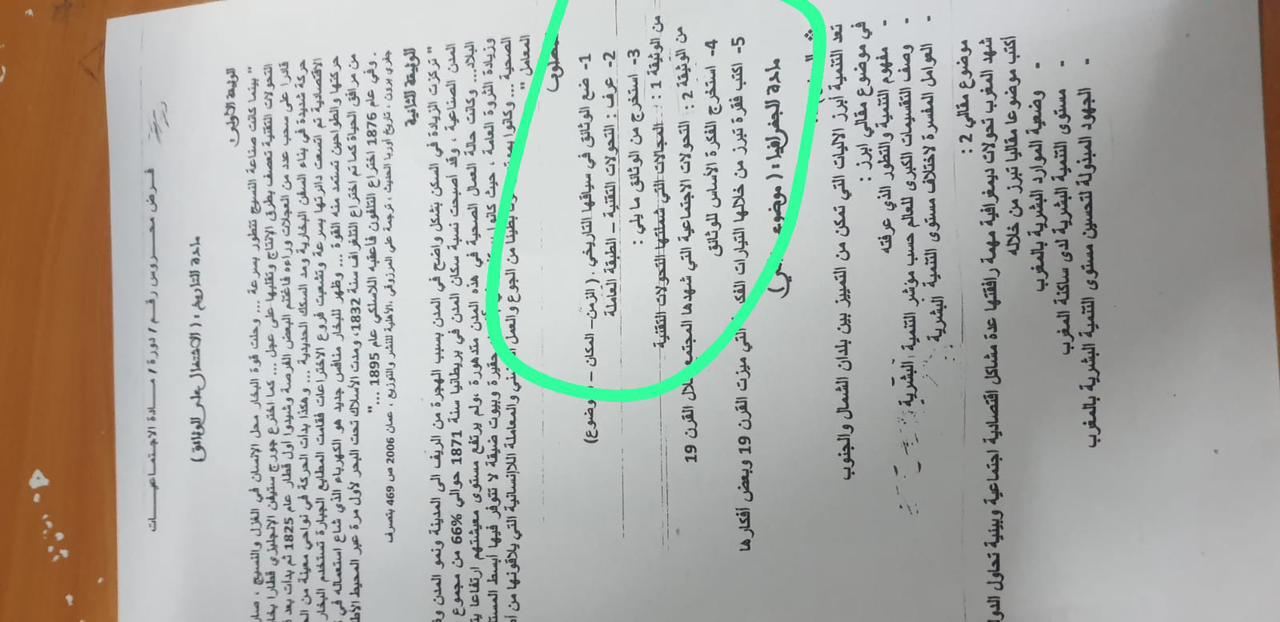 فرض محروس رقم 1 دورة 1 مادة الاجتماعيات
مادة التاريخ : ( الاشتغال على الوثائق)
الوثيقة الأولى
" بينما كانت صناعة النسيج تتطور بسرعة ... وحلت قوة البخار محل الإنسان في الغزل والنسيج ، صار
التحولات التقنية تعصف بطرق الانتاج وتقلبها على عجل ... كما اخترع جورج ستيفن الانجليزي قطارا بخا
قادرا على سحب عدد من العجلات وراءه فاغتنم البعض الفرصة وشيدوا أول قطار عام 1825 ثم بدأت بعد
حركة شديدة في بناء السفن البخارية ومد السكك الحديدية ... وهكذا بدأت الحركة في نواحي معينة من ال
الاقتصادية ثم اتسعت دائرتها بسرعة وتشعبت فروع الاختراعات فقامت المطابع الجبارة تستخدم البخار
حركتها والطواحين تستمد منه القوة ... وظهر للبخار منافس جديد هو الكهرباء الذي شاع استعماله في
من مرافق الحياة كما تم اختراع التلغراف سنة 1832، ومدت الأسلاك تحت البحر لأول مرة عبر المحيط الأط
. وفي عام 1876 اختراع التلفون فأعقبه اللاسلكي عام 1895 ... "
جفري برون ، تاريخ أوربا الحديث ، ترجمة علي المرزوقي ،الأهلية للنشر والتوزيع ، عمان 2006 ص 469 بتصرف
الوثيقة الثانية
" تركزت الزيادة في السكن بشكل واضح في المدن بسبب الهجرة من الريف الى المدينة ونمو المدن وق
المدن الصناعية . وقد أصبحت نسبة سكان المدن في بريطانيا سنة 1871 حوالي 66% من مجموع
البلاد... وكانت حالة العمال الصحية في هذه المدن متدهورة ،ولم يرتفع مستوى معيشتهم ارتفاعا ي
وزيادة الثروة العامة ، حيث كانوا حقيرة وبيوت ضيقة لا تتوفر فيها أبسط المست
الصحية ... وكانوا بطيئا من الجوع والعمل والمعاملة اللاإنسانية التي يلاقونها من أ
المعامل "
1- ضع الوثائق في سياقها التاريخي . ( الزمن– المكان – الموضوع)
2- عرف : التحولات التقنية – الطبقة العاملة
3- استخرج من الوثائق ما يلي :
من الوثيقة 1 : المجالات التي شملتها التحولات التقنية
من الوثيقة 2 : التحولات الاجتماعية التي شهدها المجتمع خلال القرن 19
4- استخرج الفكرة الأساس للوثائق
5- اكتب فقرة تبرز من خلالها التيارات التي ميزت القرن 19 وبعض أفكارها
مادة الجغرافيا : ( موضوع
تعد التنمية أبرز الآليات التي تمكن من التمييز بين بلدان الشمال والجنوب
في موضوع مقالي أبرز :
- مفهوم التنمية والتطور الذي عرفته
- وصف التقسيمات الكبرى للعالم حسب مؤشر التنمية البشرية
- العوامل المفسرة لاختلاف مستوى التنمية البشرية
موضوع مقالي 2 :
شهد المغرب تحولات ديمغرافية مهمة رافقتها عدة مشاكل اقتصادية اجتماعية وبيئية تحاول الدوا
أكتب موضوعا مقاليا تبرز من خلاله
- وضعية الموارد البشرية بالمغرب
- مستوى التنمية البشرية لدى ساكنة المغرب
- الجهود المبذولة لتحسين مستوى التنمية البشرية بالمغرب